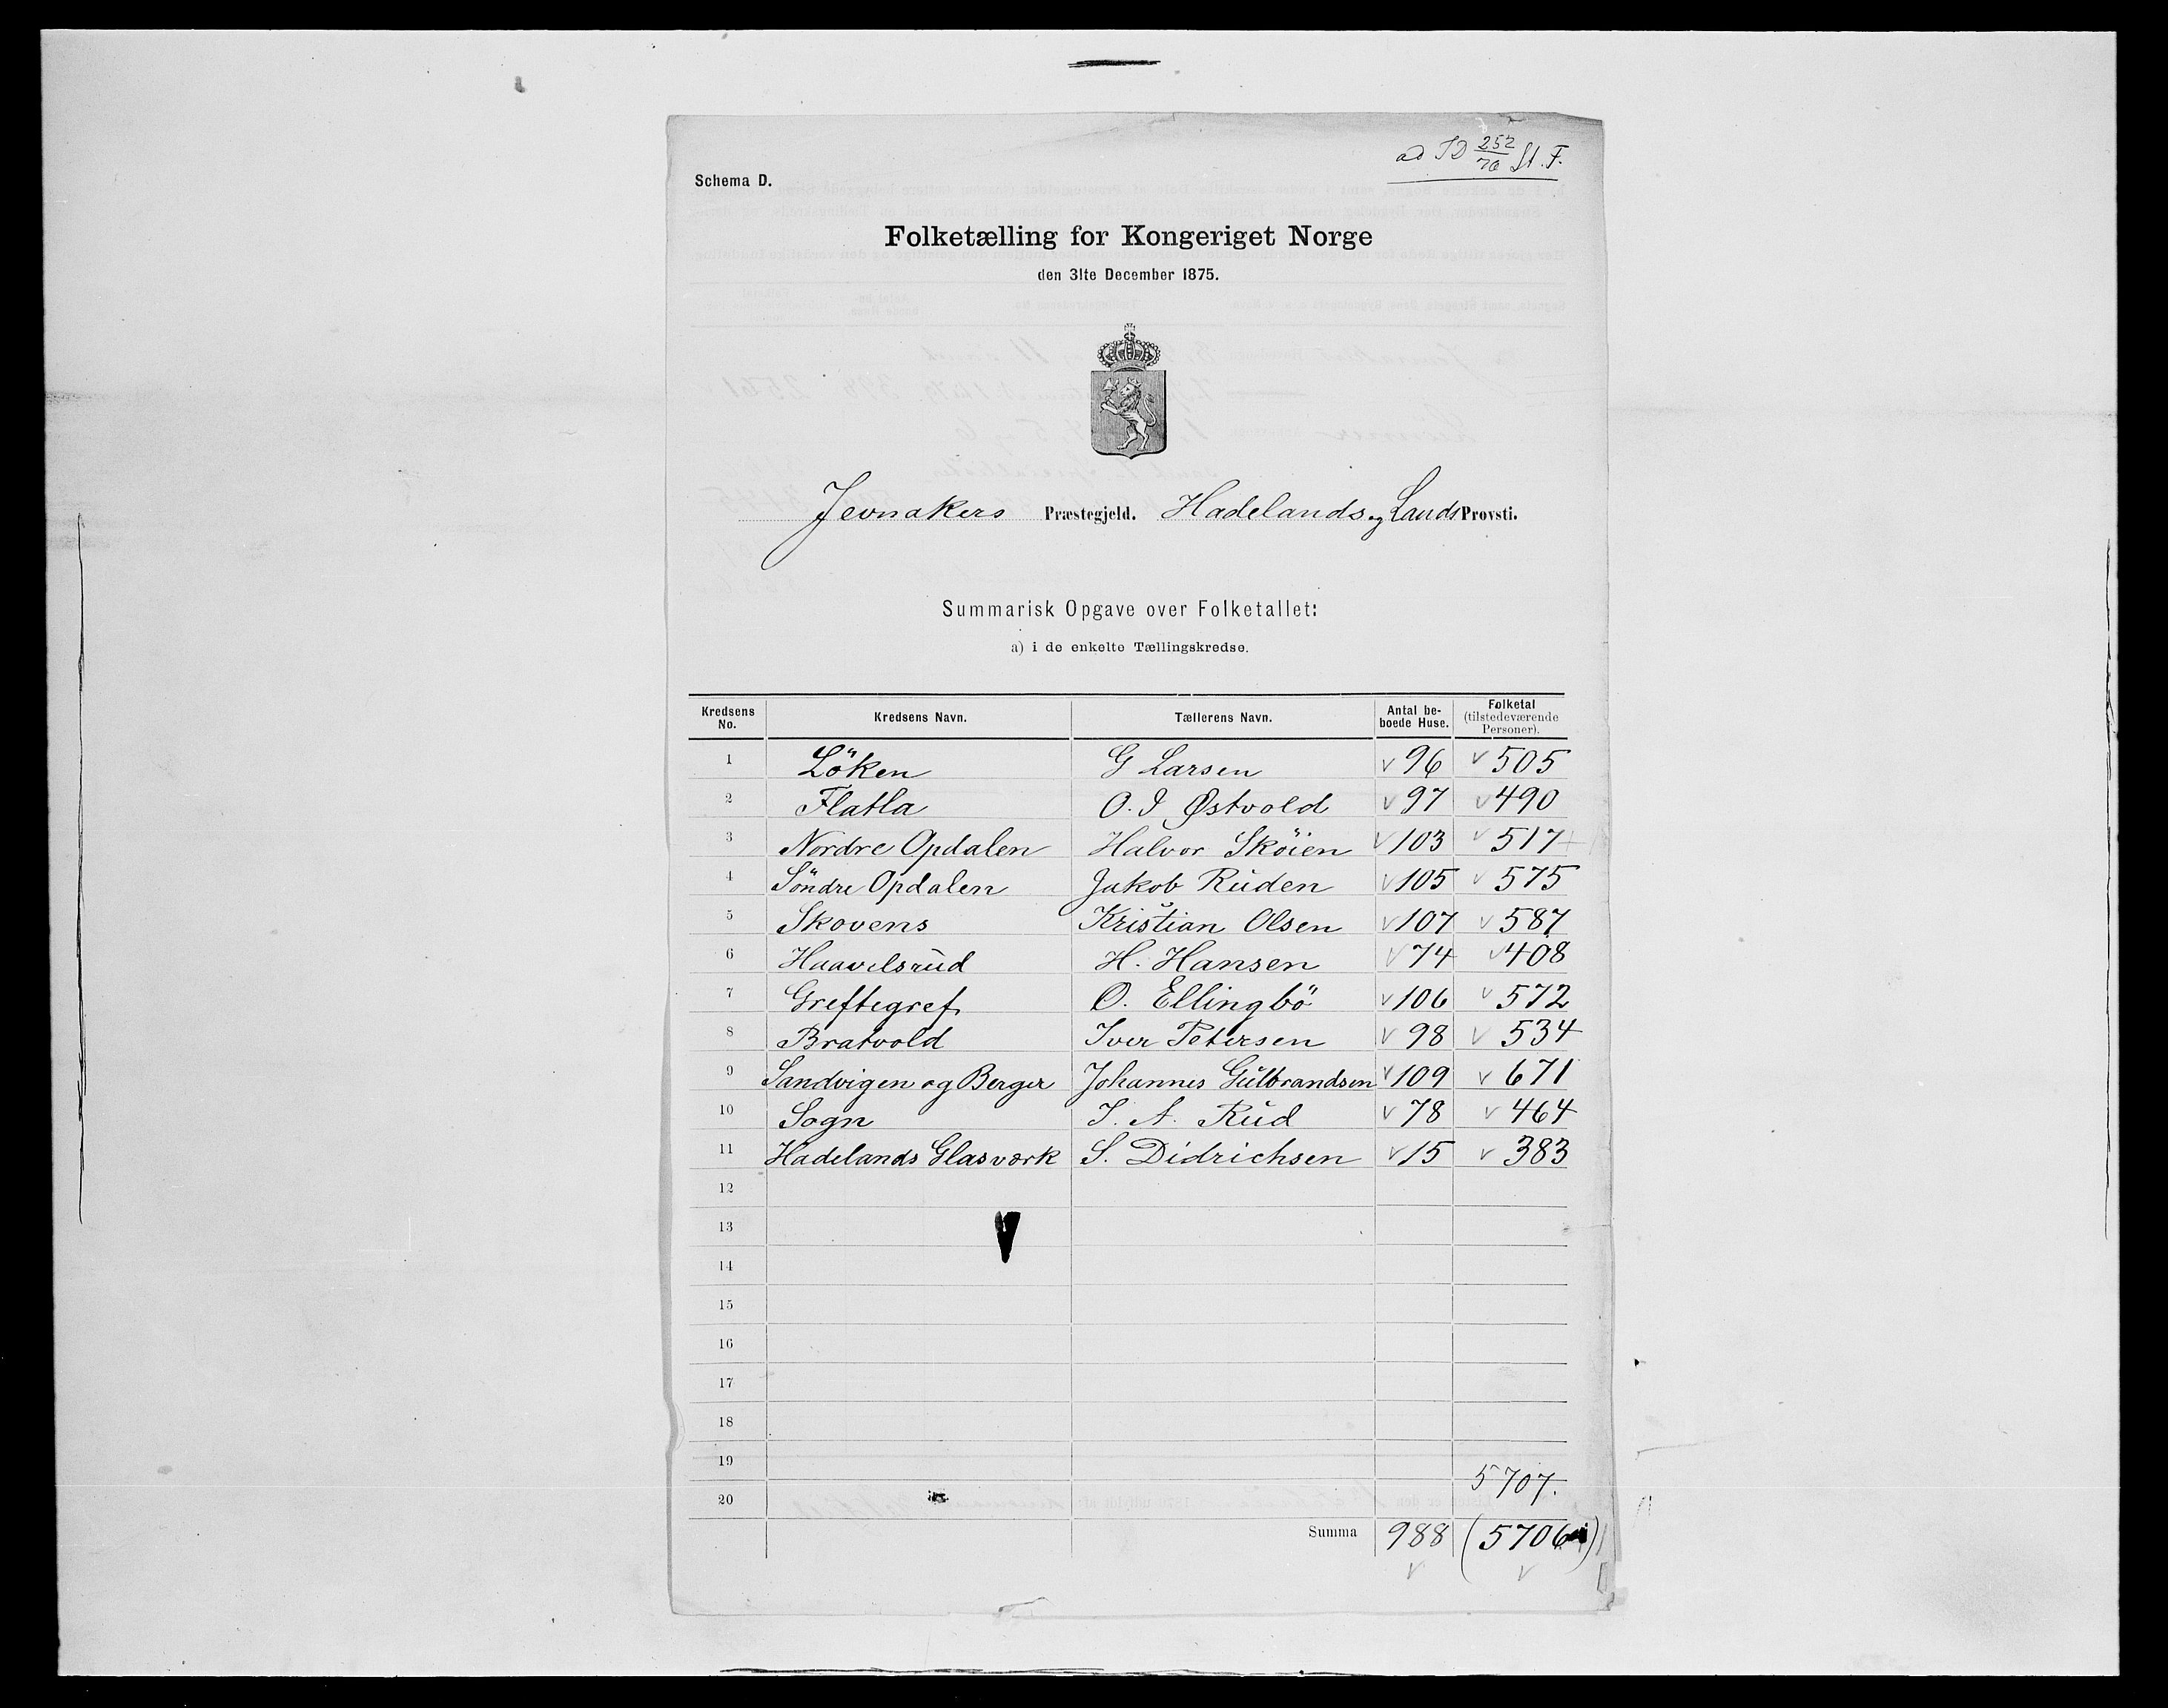 ad JD 252/76 St. F.
Schema D.
Folketælling for Kongeriget Norge
den 31te December 1875.
Jevnakers Præstegjeld. Hadelands og Lands Provsti.
Summarisk Opgave over Folketallet:
a) i de enkelte Tællingskredse.
Kredsens No. Kredsens Navn. Tællerens Navn. Antal beboede Huse. Folketal (tilstedeværende Personer).
1 Löken G Larsen 96 505
2 Flatla O. I Østvold 97 490
3 Nordre Opdalen Halvor Sköien 103 517
4 Söndre Opdalen Jakob Ruden 105 575
5 Skovens Kristian Olsen 107 587
6 Haavelsrud H. Hansen 74 408
7 Greftegref O. Ellingbö 106 572
8 Bratvold Iver Petersen 98 534
9 Sandvigen og Berger Johannes Gulbrandsen 109 671
10 Sogn I. A. Rud 78 464
11 Hadelands Glasværk S. Didrichsen 15 383
12
13
14
15
16
17
18
19
5707.
20
Summa 988 (5706)